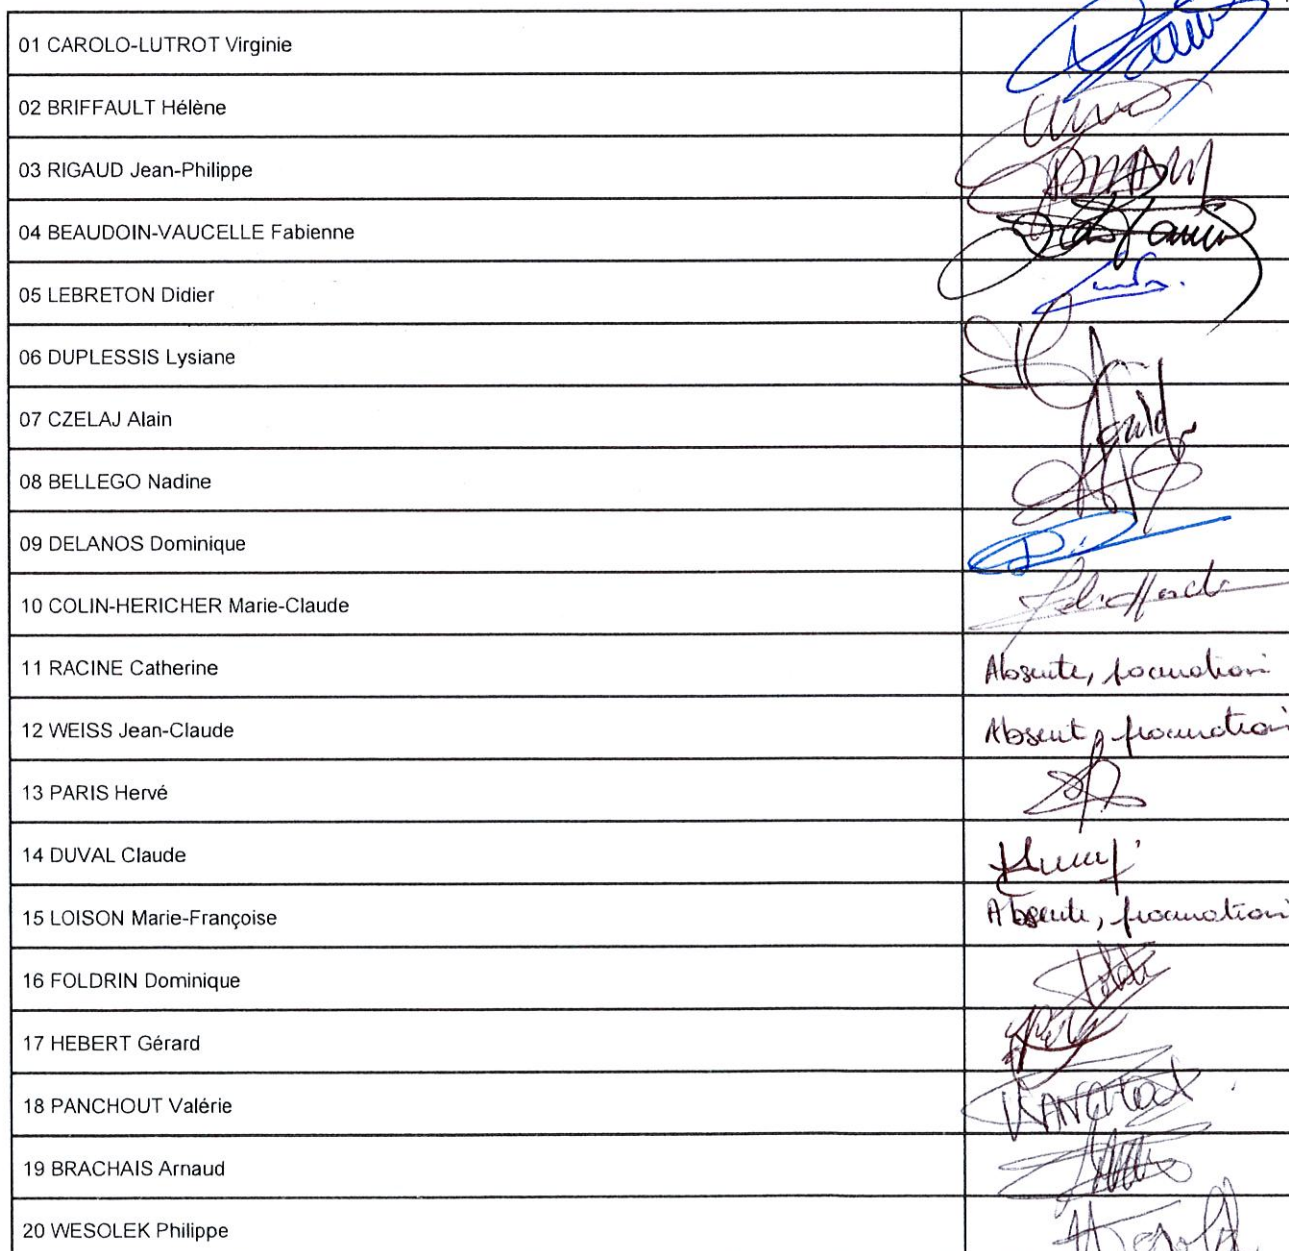 01 CAROLO-LUTROT Virginie
02 BRIFFAULT Hélène
03 RIGAUD Jean-Philippe
04 BEAUDOIN-VAUCELLE Fabienne
05 LEBRETON Didier
06 DUPLESSIS Lysiane
07 CZELAJ Alain
08 BELLEGO Nadine
09 DELANOS Dominique
10 COLIN-HERICHER Marie-Claude
11 RACINE Catherine Absente, procuration
12 WEISS Jean-Claude Absent, procuration
13 PARIS Hervé
14 DUVAL Claude
15 LOISON Marie-Françoise Absente, procuration
16 FOLDRIN Dominique
17 HEBERT Gérard
18 PANCHOUT Valérie PANCHOUT
19 BRACHAIS Arnaud
20 WESOLEK Philippe